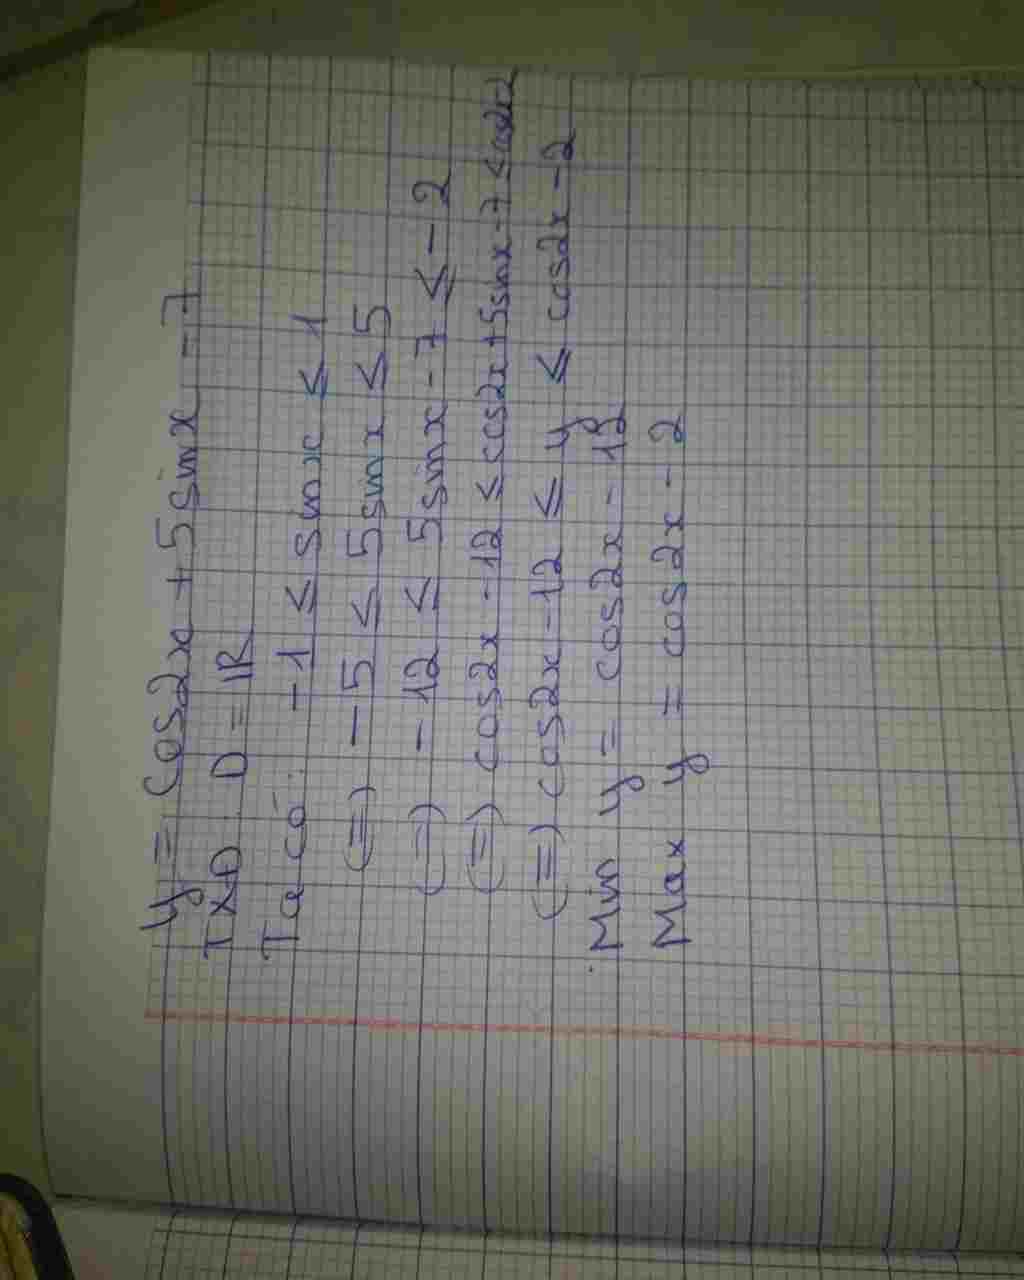 y = cos2x + 5sinx - 7
TXD D = IR
Ta có: -1 ≤ sinx ≤ 1
(=) -5 ≤ 5sinx ≤ 5
(=) -12 ≤ 5sinx - 7 ≤ -2
(=) cos2x - 12 ≤ cos2x + 5sinx - 7 ≤ cos2x
(=) cos2x - 12 ≤ y ≤ cos2x - 2
Min y = cos2x - 12
Max y = cos2x - 2